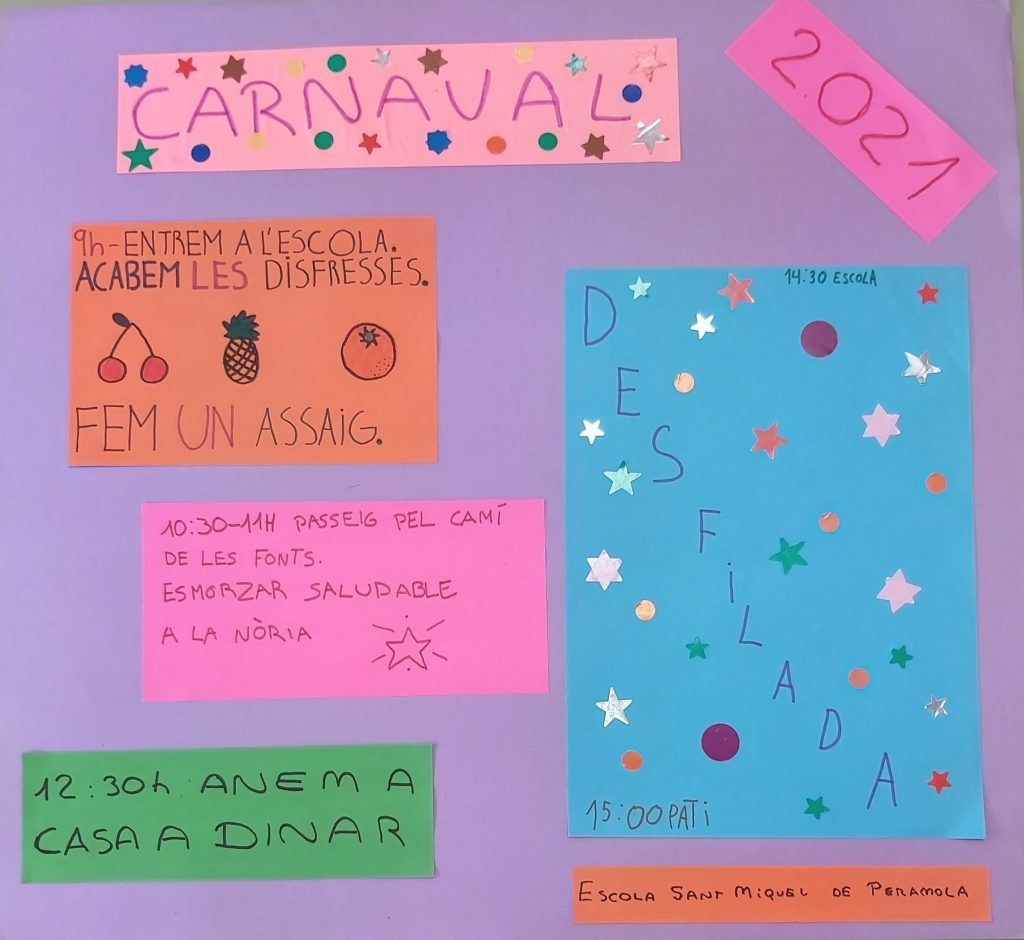 CARNAVAL
2021
9h-ENTREM A L'ESCOLA.
ACABEM LES DISFRESSES.
FEM UN ASSAIG.
10:30-11H PASSEIG PEL CAMÍ
DE LES FONTS.
ESMORZAR SALUDABLE
A LA NÒRIA
12:30h ANEM A
CASA A DINAR
14:30 ESCOLA
DESFILADA
15:00 PATI
ESCOLA SANT MIQUEL DE PERAMOLA